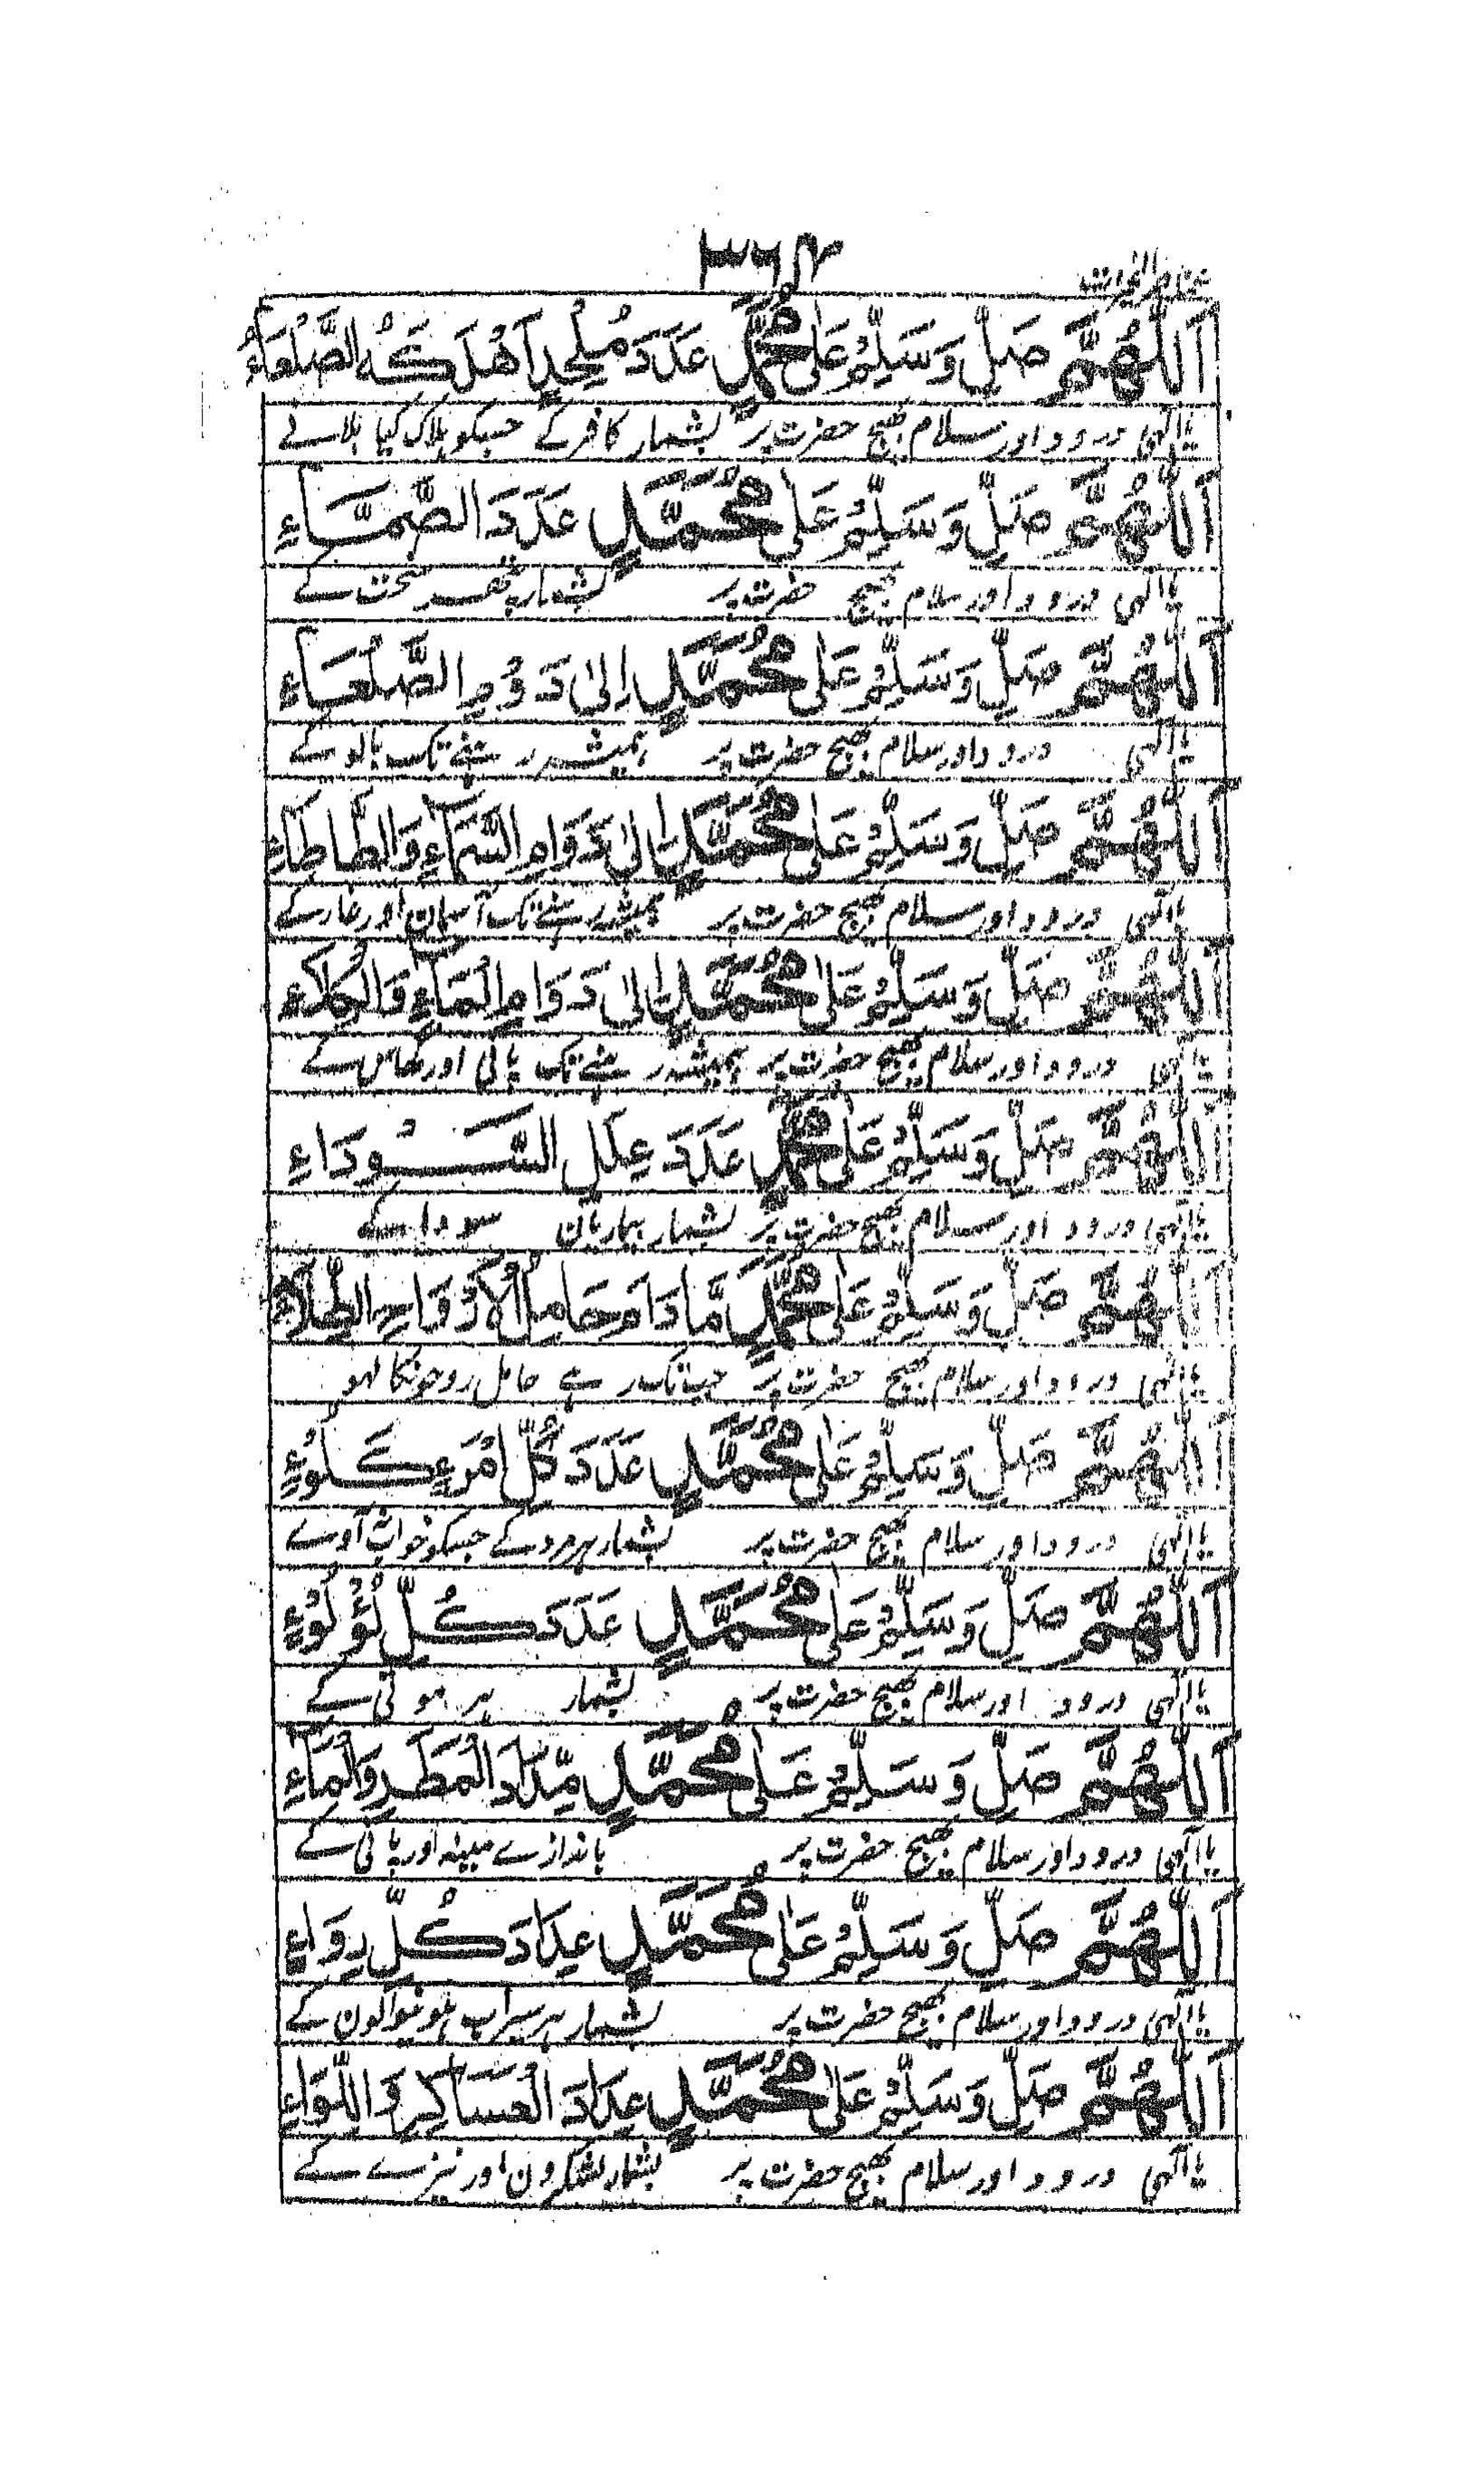 ۳۶۴
اَللّٰهُمَّ صَلِّ وَسَلِّمْ عَلٰى مُحَمَّدٍ عَدَدَ مُلْحِدٍ اَهْلَكَهُ الصَّلْعَاءُ
یا الٰہی درود اور سلام بھیج حضرت پر بشمار کافر کے جسکو ہلاک کیا بلا نے
اَللّٰهُمَّ صَلِّ وَسَلِّمْ عَلٰى مُحَمَّدٍ عَدَدَ الصَّمَّاءِ
یا الٰہی درود اور سلام بھیج حضرت پر بشمار پتھر سخت کے
اَللّٰهُمَّ صَلِّ وَسَلِّمْ عَلٰى مُحَمَّدٍ اِلٰى دَوْمِ الصَّلْعَاءِ
یا الٰہی درود اور سلام بھیج حضرت پر ہمیشہ رہنے تک بالو کے
اَللّٰهُمَّ صَلِّ وَسَلِّمْ عَلٰى مُحَمَّدٍ اِلٰى دَوَامِ السَّمَآءِ وَالطَّاطَاءِ
یا الٰہی درود اور سلام بھیج حضرت پر ہمیشہ رہنے تک آسمان اور غار کے
اَللّٰهُمَّ صَلِّ وَسَلِّمْ عَلٰى مُحَمَّدٍ اِلٰى دَوَامِ الْمَآءِ وَالْكَلَاءِ
یا الٰہی درود اور سلام بھیج حضرت پر ہمیشہ رہنے تک پانی اور گھاس کے
اَللّٰهُمَّ صَلِّ وَسَلِّمْ عَلٰى مُحَمَّدٍ عَدَدَ عِلَلِ السَّوْدَاءِ
یا الٰہی درود اور سلام بھیج حضرت پر بشمار بیماریان سودا کے
اَللّٰهُمَّ صَلِّ وَسَلِّمْ عَلٰى مُحَمَّدٍ مَّا دَامَ حَامِلُ الْاَرْوَاحِ الطِّلَاءُ
یا الٰہی درود اور سلام بھیج حضرت پر جب تک رہے حامل روحونکا لہو
اَللّٰهُمَّ صَلِّ وَسَلِّمْ عَلٰى مُحَمَّدٍ عَدَدَ كُلِّ امْرَءٍ كَلُوْءٍ
یا الٰہی درود اور سلام بھیج حضرت پر بشمار ہر مرد کے جسکو خواب آوے
اَللّٰهُمَّ صَلِّ وَسَلِّمْ عَلٰى مُحَمَّدٍ عَدَدَ كُلِّ لُؤْلُوْءٍ
یا الٰہی درود اور سلام بھیج حضرت پر بشمار ہر موتی کے
اَللّٰهُمَّ صَلِّ وَسَلِّمْ عَلٰى مُحَمَّدٍ مِّدَادَ الْمَطَرِ وَالْمَآءِ
یا الٰہی درود اور سلام بھیج حضرت پر باندازے مینہ اور پانی کے
اَللّٰهُمَّ صَلِّ وَسَلِّمْ عَلٰى مُحَمَّدٍ عِدَادَ كُلِّ رِوَاءٍ
یا الٰہی درود اور سلام بھیج حضرت پر بشمار ہر سیراب ہونیوالون کے
اَللّٰهُمَّ صَلِّ وَسَلِّمْ عَلٰى مُحَمَّدٍ عِدَادَ الْعَسَاكِرِ وَاللِّوَاءِ
یا الٰہی درود اور سلام بھیج حضرت پر بشمار لشکرون اور نیزے کے